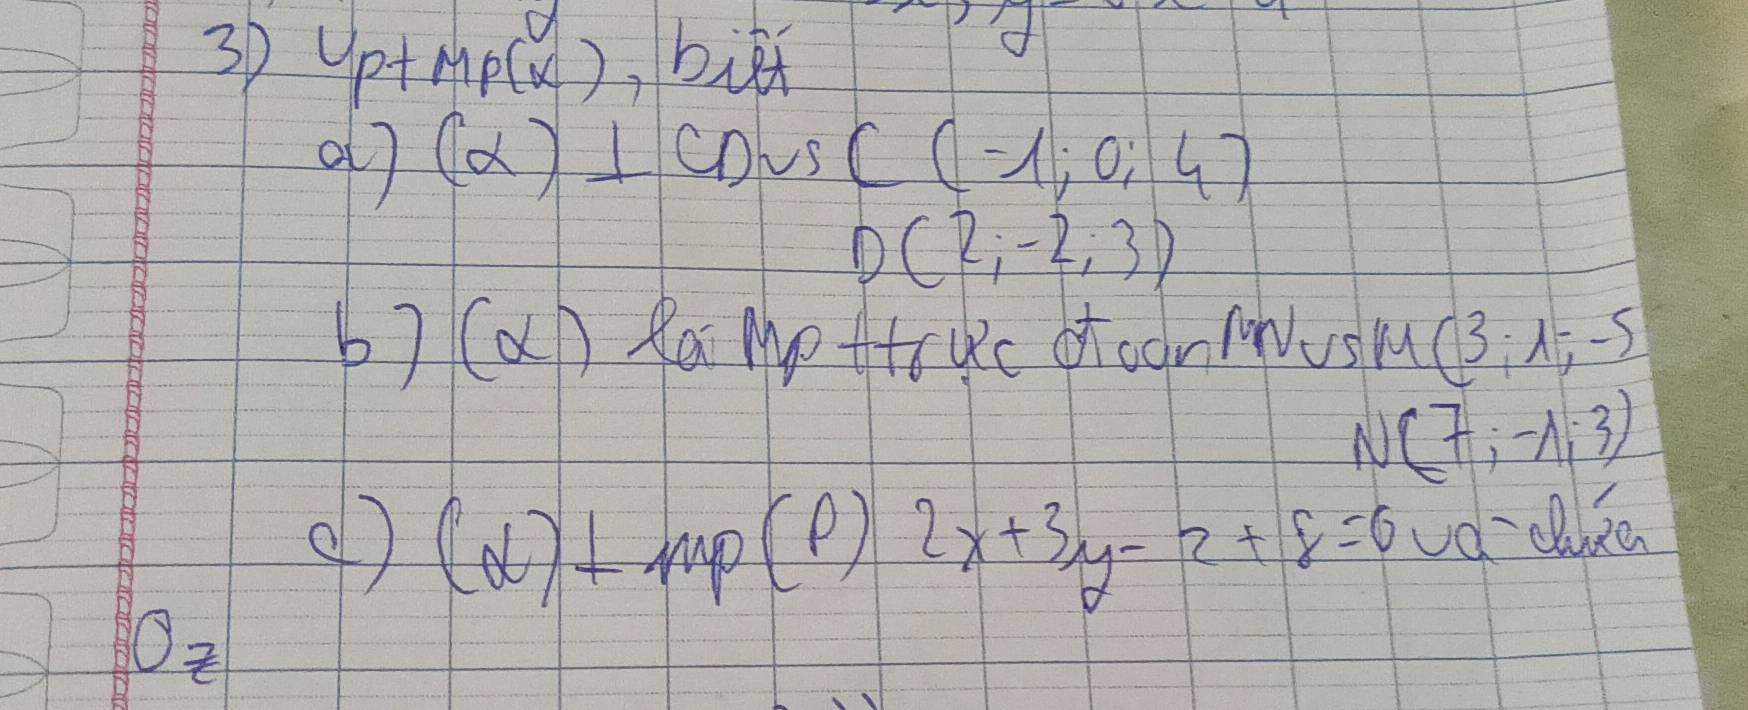 3) Vpt mp(α), biết
a) (α) ⊥ CD vs C (-1; 0; 4)
D(2; -2; 3)
b) (α) là mp ttrực đoạn MN vs M(3; 1; -5
N(7; -1; 3)
c) (α) ⊥ mp(P) 2x+3y-z+8=0 và chứa
Oz